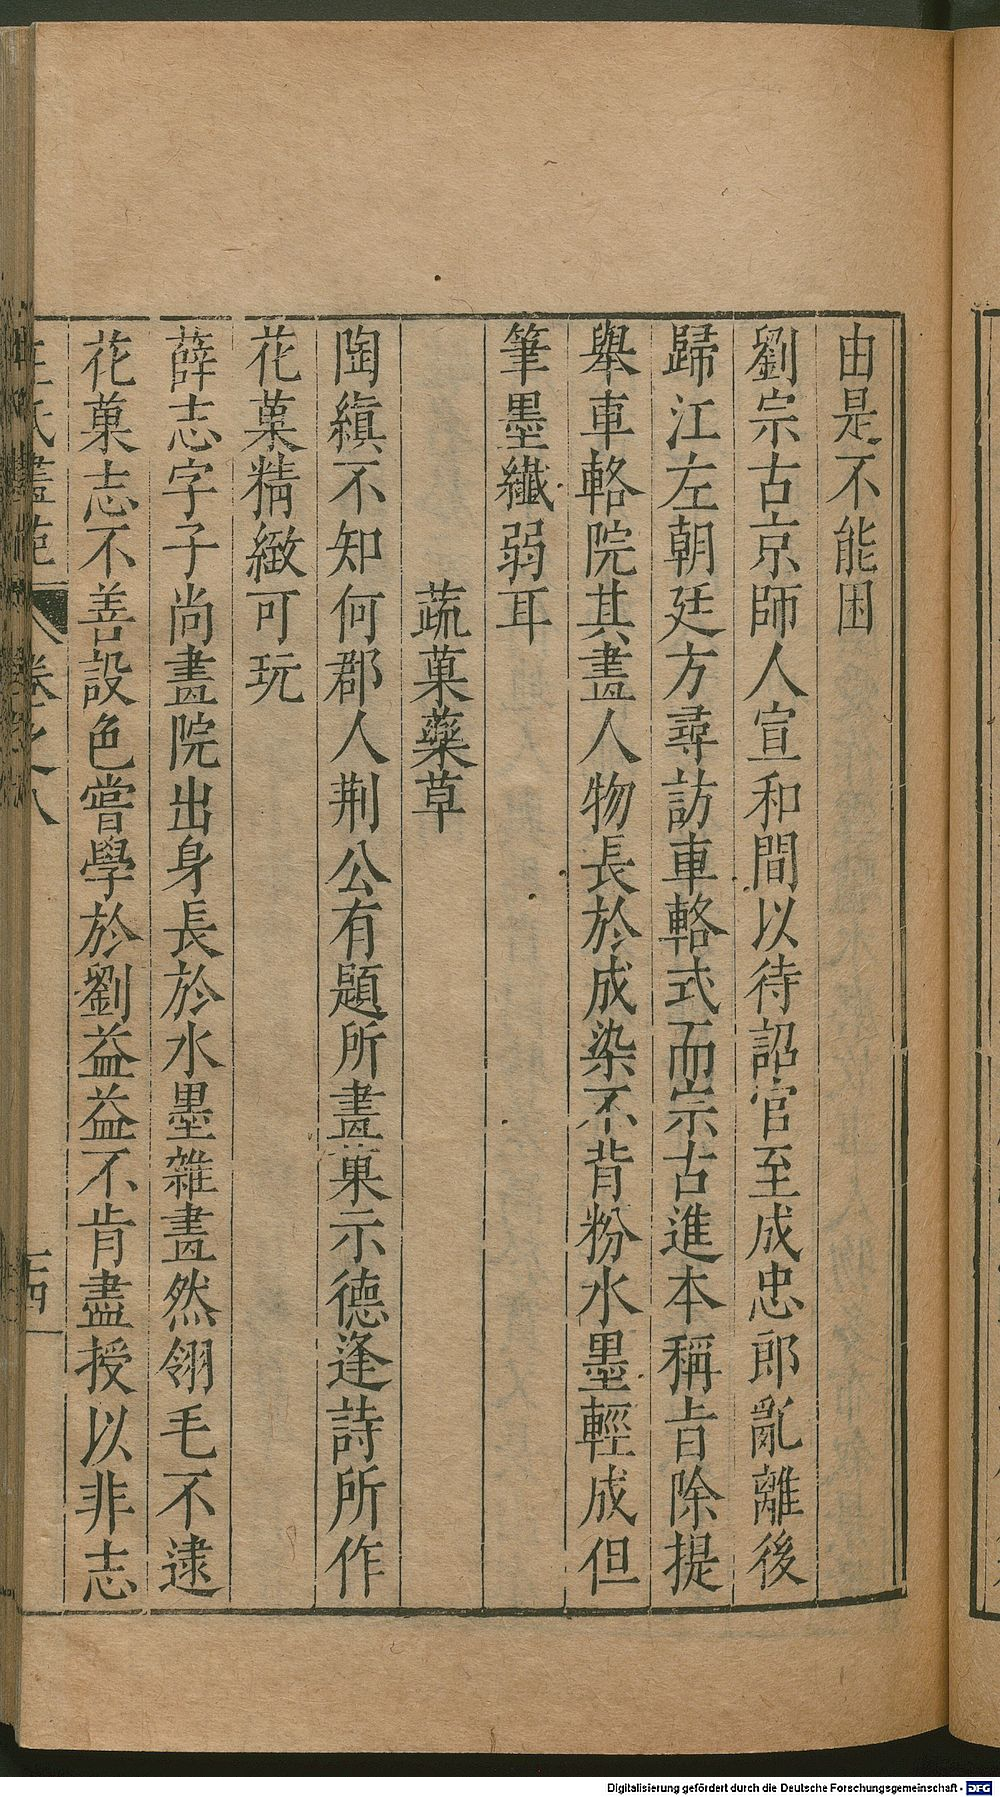 由是不能困
劉宗古京師人宣和間以待詔官至成忠郎亂離後
歸江左朝廷方尋訪車輅式而宗古進本稱旨除提
舉車輅院其畫人物長於成染不背粉水墨輕成但
筆墨纖弱耳
蔬菓藥草
陶縝不知何郡人荆公有題所畫菓示德逢詩所作
花菓精緻可玩
薛志字子尚畫院出身長於水墨雜畫然翎毛不逮
花菓志不善設色嘗學於劉益益不肯盡授以非志
王氏畫苑 卷之八
Digitalisierung gefördert durch die Deutsche Forschungsgemeinschaft - DFG